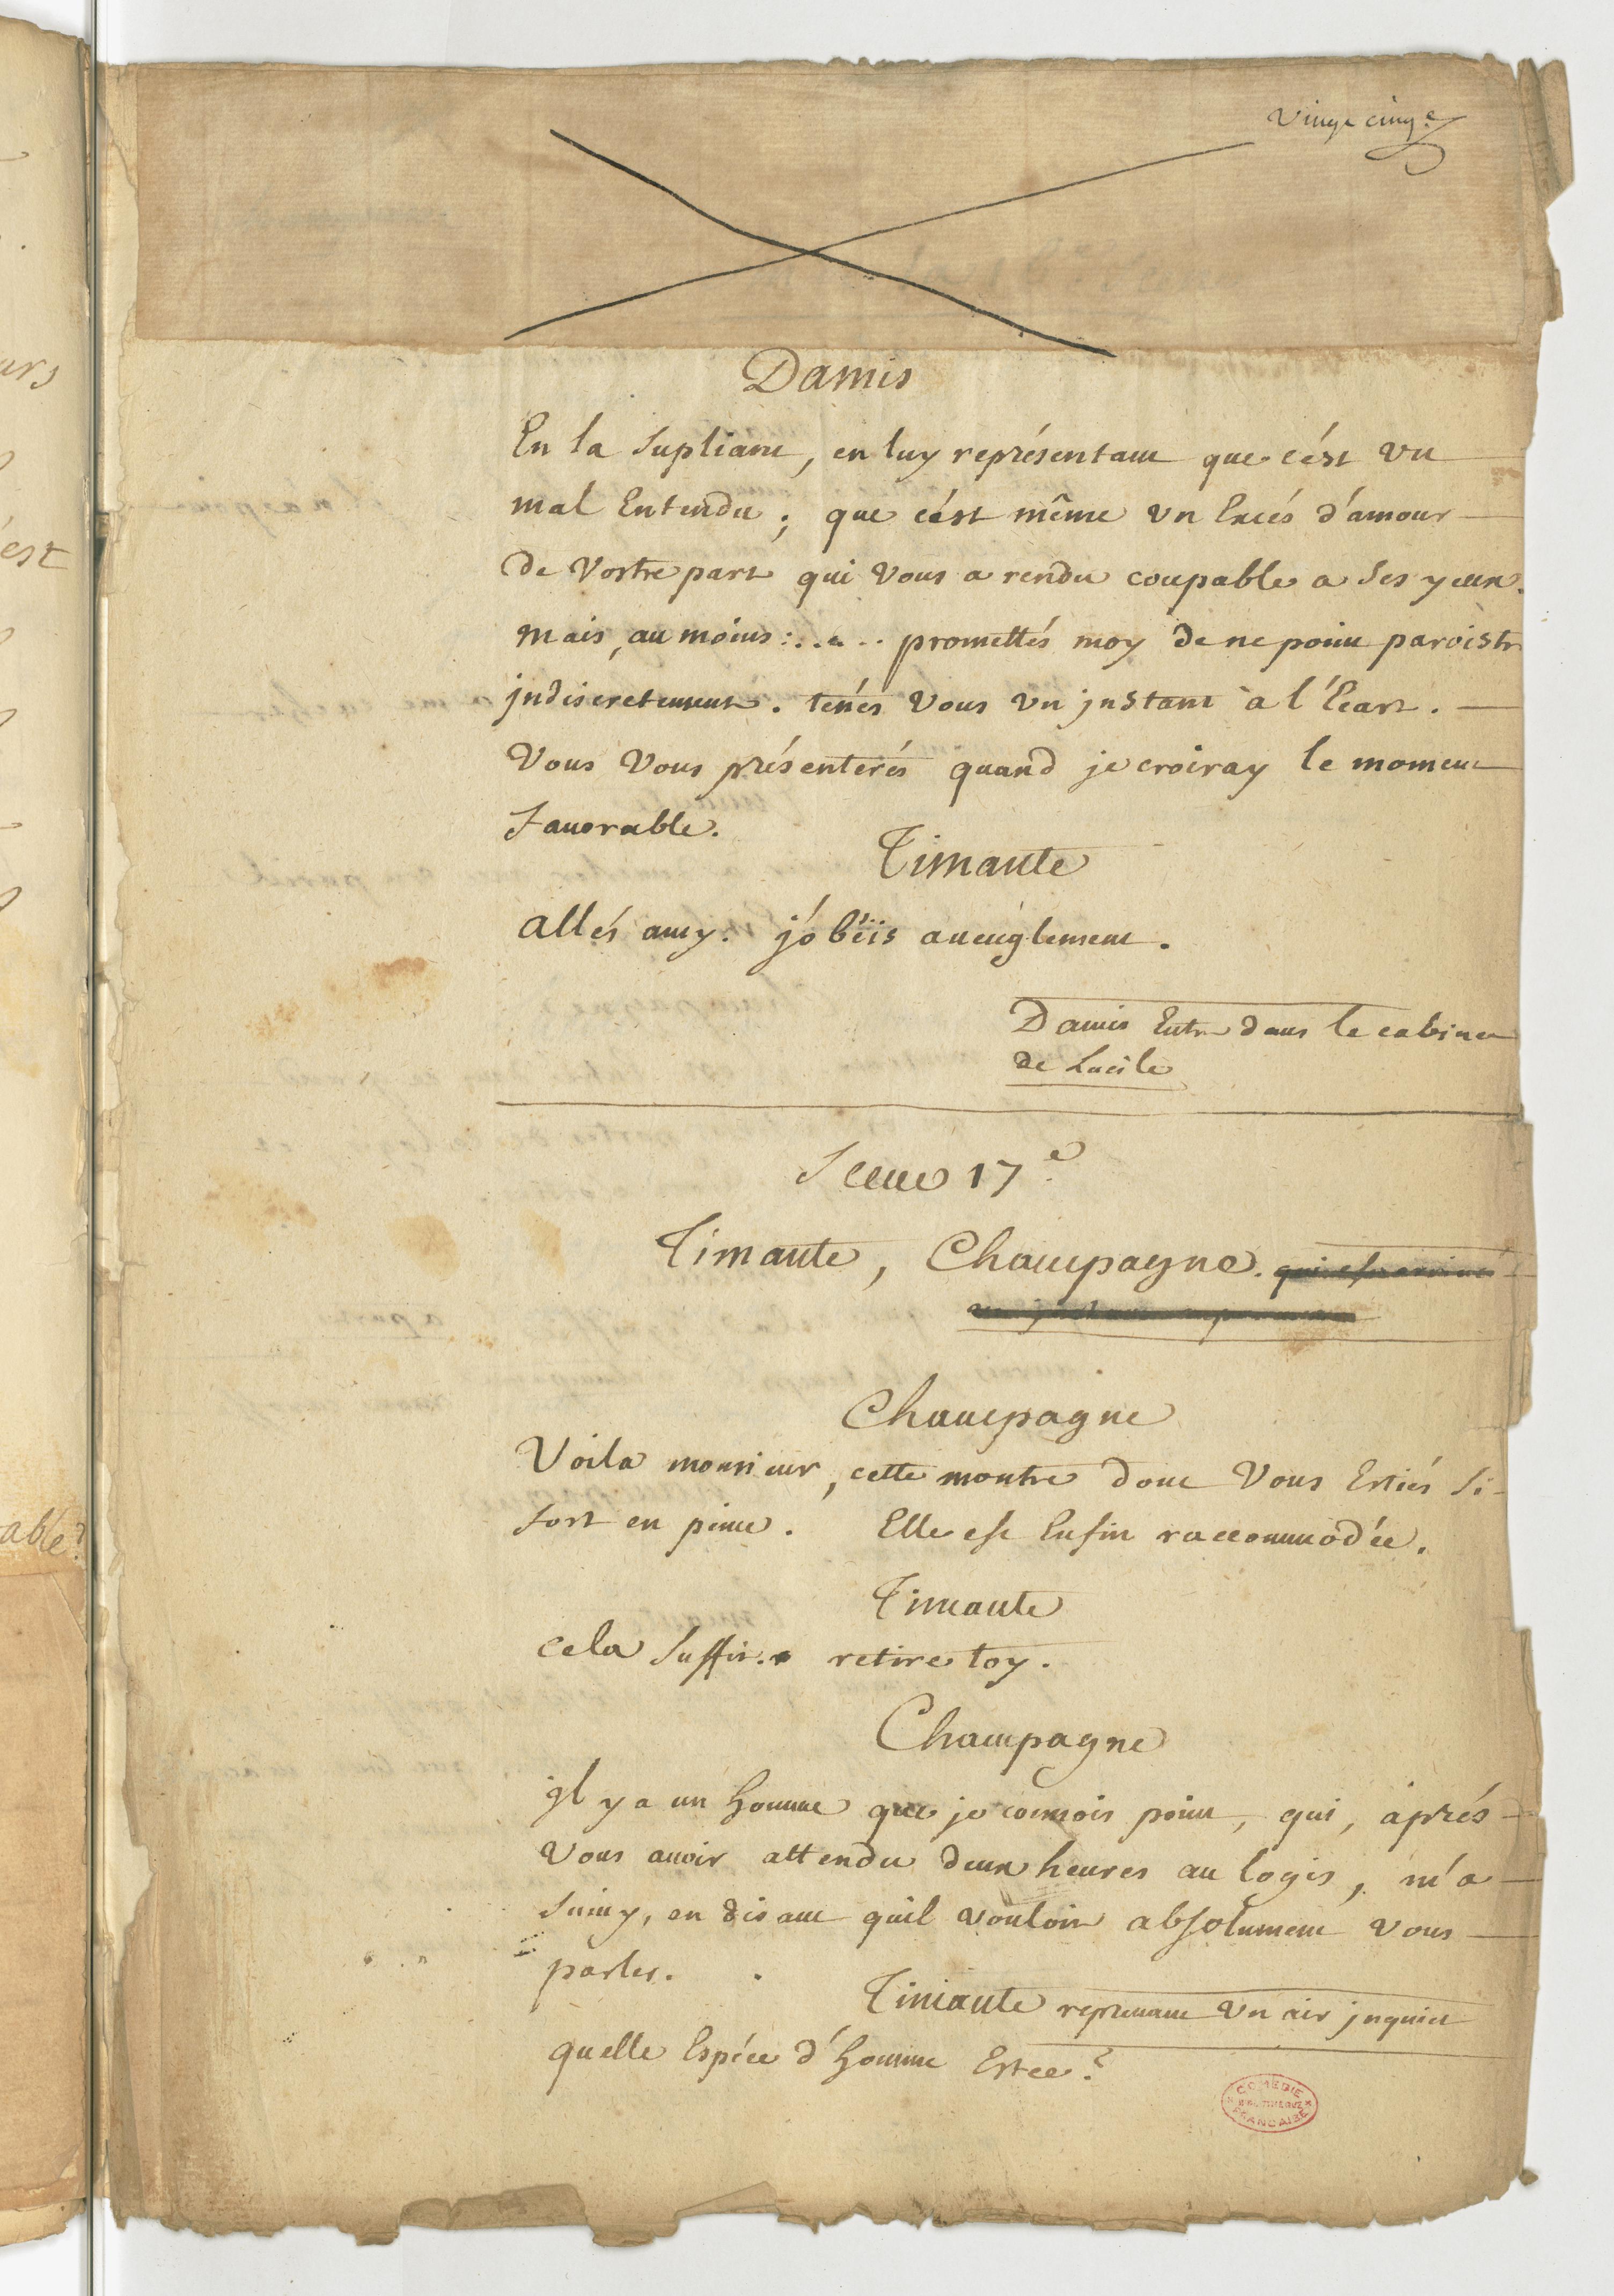 Vingt cinq.e
Damis
En la supliant, en luy représentant que c'ést vn
mal Entendu; que c'ést même vn Excés d'amour
de Vostre part qui Vous a rendu coupable a ses yeux.
mais, au moins:.... promettés moy de ne point paroistre
jndiscretement. tenés Vous vn jnstant à l'Ecart.
Vous Vous présenterés quand je croiray le moment
favorable.
Timante
allés amy. j'obéïs aueuglement.
Damis Entre dans le cabinet
de Lucile
Scene 17.e
Timante, Champagne.
Champagne
Voila monsieur, cette montre dont Vous Estiés si
fort en peine. Elle est Enfin raccommodée.
Timante
cela suffit. retire toy.
Champagne
jl y a un homme que je connois point, qui, aprés
Vous auoir attendu deux heures au logis, m'a
suiuy, en disant quil vouloit absolument vous
parler.
Timante reprenant vn air jnquiet
quelle Espéce d'homme Estce?
COMEDIE
BIBLIOTHEQUE
FRANCAISE
urs
ést
able?